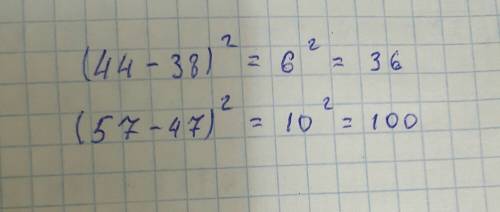 (44 - 38)² = 6² = 36
(57 - 47)² = 10² = 100